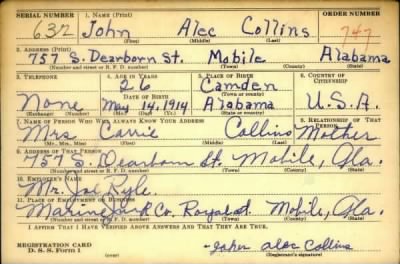 SERIAL NUMBER 1. NAME (Print) ORDER NUMBER
632 John Alec Collins 747
(First) (Middle) (Last)
2. ADDRESS (Print)
757 S. Dearborn St. Mobile Alabama
(Number and street or R. F. D. number) (Town) (County) (State)
3. TELEPHONE 4. AGE IN YEARS 5. PLACE OF BIRTH 6. COUNTRY OF CITIZENSHIP
26 Camden
DATE OF BIRTH (Town or county)
None May 14, 1914 Alabama U.S.A.
(Exchange) (Number) (Mo.) (Day) (Yr.) (State or country)
7. NAME OF PERSON WHO WILL ALWAYS KNOW YOUR ADDRESS 8. RELATIONSHIP OF THAT PERSON
Mrs Carrie Collins Mother
(Mr., Mrs., Miss) (First) (Middle) (Last)
9. ADDRESS OF THAT PERSON
757 S. Dearborn St. Mobile, Ala.
(Number and street or R. F. D. number) (Town) (County) (State)
10. EMPLOYER'S NAME
Mr. Joe Ryle
11. PLACE OF EMPLOYMENT OR BUSINESS
Co. Royal St. Mobile, Ala.
(Number and street or R. F. D. number) (Town) (County) (State)
I AFFIRM THAT I HAVE VERIFIED ABOVE ANSWERS AND THAT THEY ARE TRUE.
REGISTRATION CARD
D. S. S. Form 1 John alec Collins
(Registrant's signature)